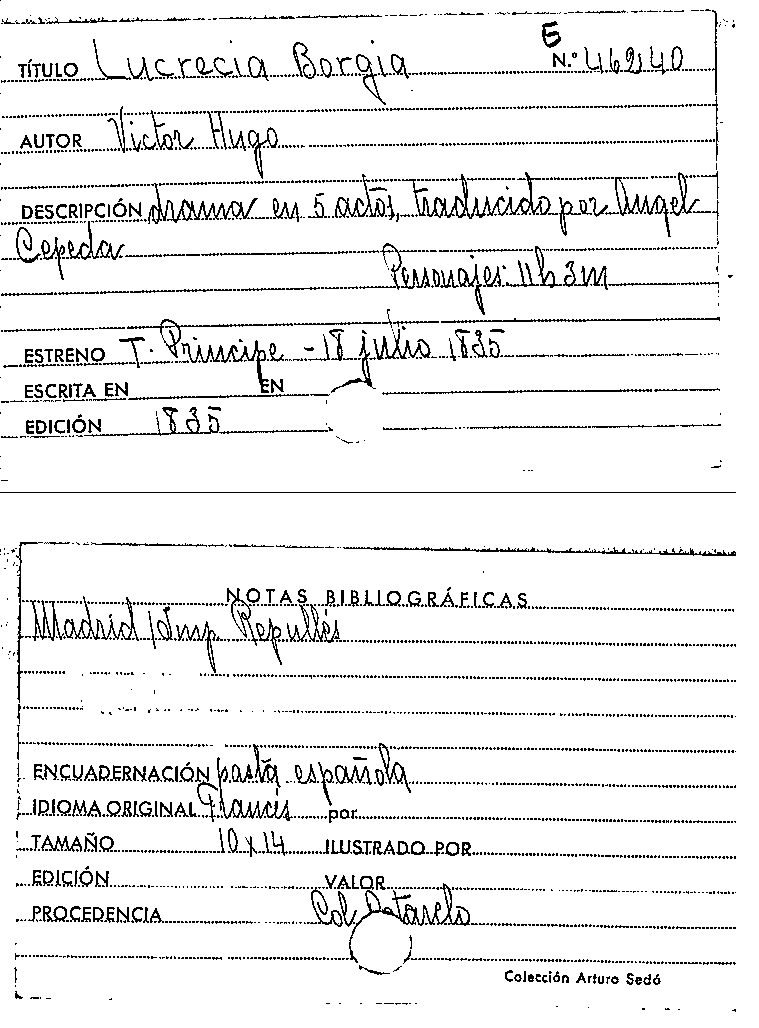 E
TÍTULO Lucrecia Borgia N.º 46240
AUTOR Victor Hugo
DESCRIPCIÓN drama en 5 actos, traducido por Angel
Cepeda
Personajes: 11h 3m
ESTRENO T. Principe - 18 julio 1835
ESCRITA EN EN
EDICIÓN 1835
NOTAS BIBLIOGRÁFICAS
Madrid /Imp. Repullés
ENCUADERNACIÓN pasta española
IDIOMA ORIGINAL Francés por
TAMAÑO 10 x 14 ILUSTRADO POR
EDICIÓN VALOR
PROCEDENCIA Col. Cotarelo
Colección Arturo Sedó